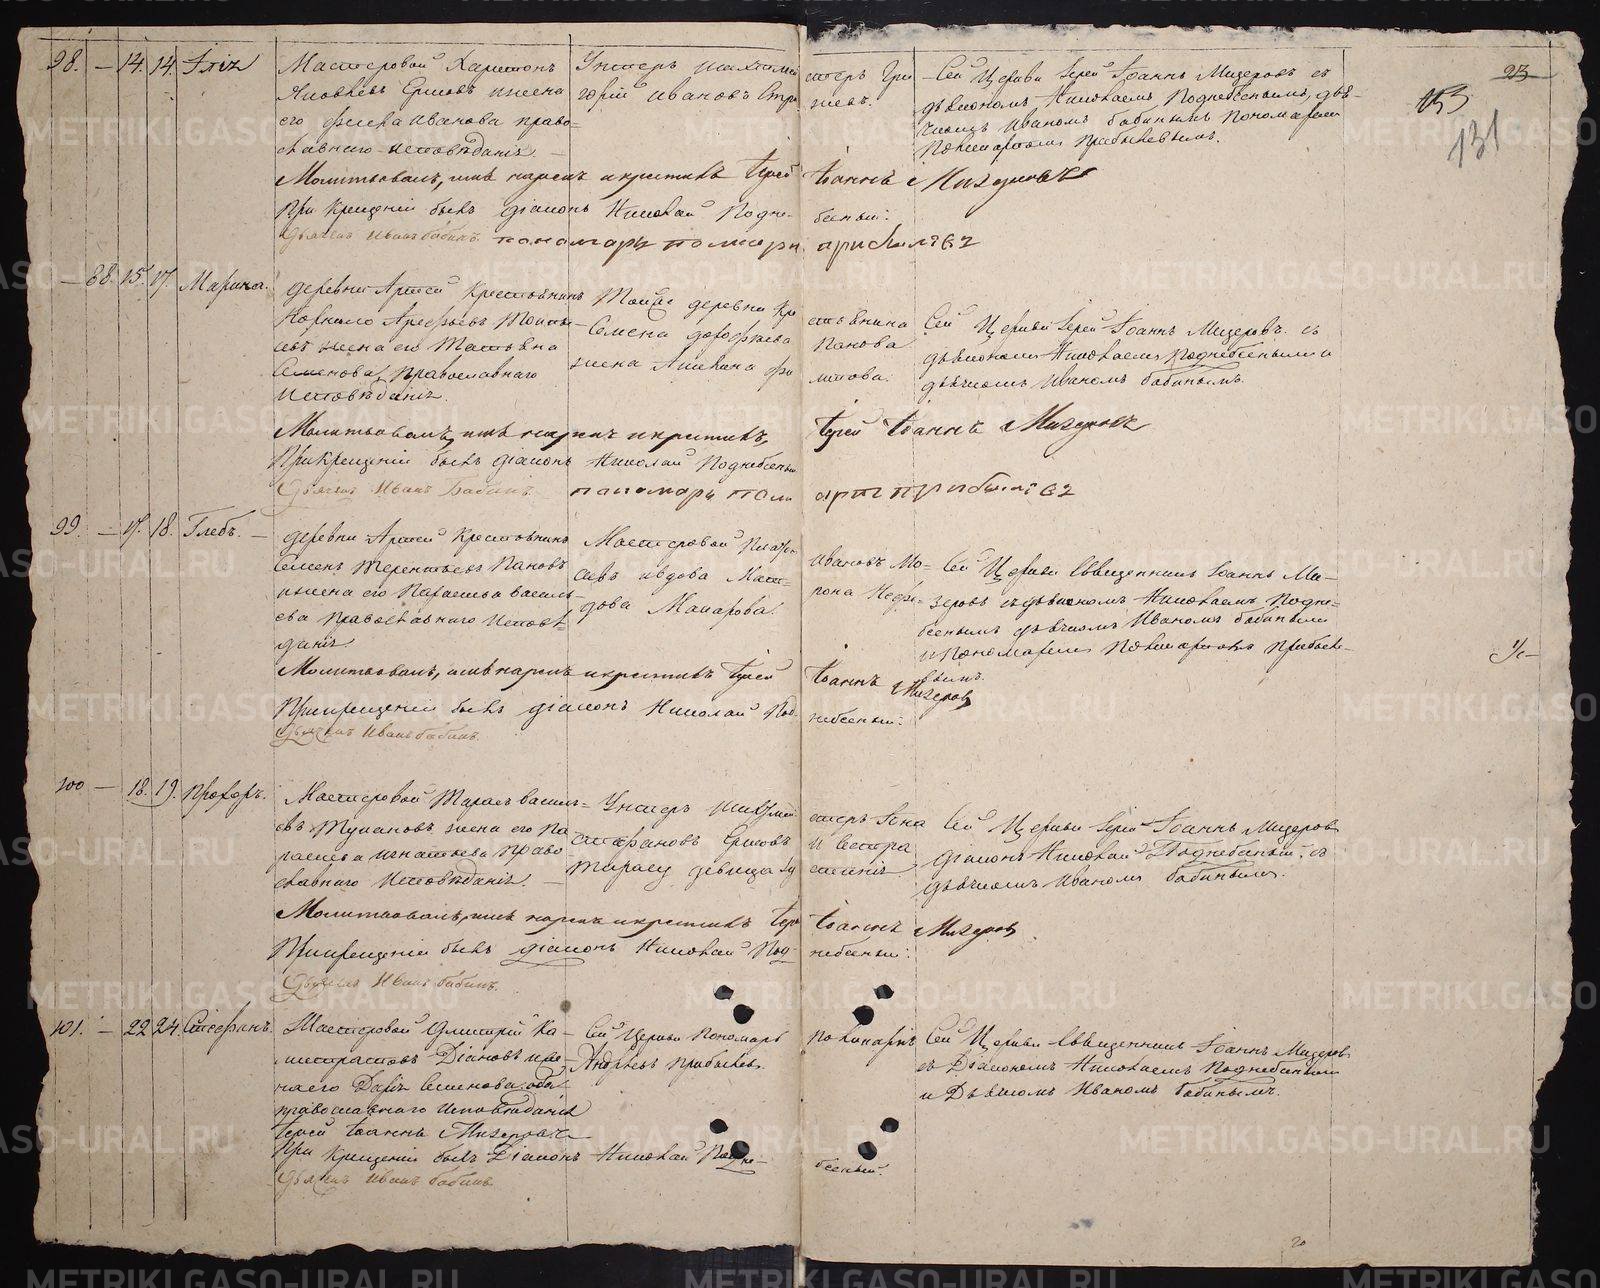 23
153
131
98. — 14. 14. Илiя
Мастеровой Харитонъ
Яковлевъ Ершовъ и жена
его Фекла Иванова право-
славнаго исповѣданiя. —
Унтеръ шахтмейстеръ Гри-
горiй Ивановъ
Сей Церкви Iерей Iоаннъ Мизеровъ съ
дьякономъ Николаемъ Поднебеснымъ, дья-
чкомъ Иваномъ Бабинымъ Пономаремъ
Поликарпомъ Прибылевымъ.
Молитвовалъ, имя нарекъ и крестилъ Iерей Iоаннъ Мизеровъ
При Крещенiи былъ дiаконъ Николай Поднебесный.
Дьячекъ Иванъ Бабинъ. пономарь поликарпъ прибылевъ
— 88. 15. 17. Марина.
деревни Артей Крестьянинъ
жена его Татьяна
Семенова, Православнаго
Исповѣданiя.
Той же деревни Крестьянина
Семена Дорофеева Панова
жена Акилина
Сей Церкви Iерей Iоаннъ Мизеровъ. съ
дьякономъ Николаемъ Поднебеснымъ и
дьячкомъ Иваномъ Бабинымъ.
Молитвовалъ, имя нарекъ и крестилъ, Iерей Iоаннъ Мизеровъ
При крещенiи былъ дiаконъ Николай Поднебесный
Дьячекъ Иванъ Бабинъ. пономарь поликарпъ прибылевъ
99. — 17. 18. Глебъ. —
деревни Артей Крестьянинъ
Семенъ Терентьевъ Пановъ
и жена его Парасковья Василь-
ева Православнаго Исповѣ-
данiя
Мастеровой Ивановъ Мо-
Макарова.
Сей Церкви Священникъ Iоаннъ Ми-
зеровъ съ дьякономъ Николаемъ Подне-
беснымъ дьячкомъ Иваномъ Бабинымъ
и Пономаремъ Поликарпомъ Прибыле-
вымъ.
Молитвовалъ, имя нарекъ и крестилъ Iерей Iоаннъ Мизеровъ
При крещенiи былъ дiаконъ Николай Поднебесный.
Дьячекъ Иванъ Бабинъ.
100 — 18. 19. Прохоръ.
Мастеровой Тарасъ Василь-
евъ Тукановъ жена его Па-
расковья Игнатьева Право-
славнаго Исповѣданiя. —
Унтеръ шихтмейстеръ
Стефановъ Ершовъ
девица
Сей Церкви Iерей Iоаннъ Мизеровъ
дiаконъ Николай Поднебесный. съ
дьячкомъ Иваномъ Бабинымъ.
Молитвовалъ, имя нарекъ и крестилъ Iерей Iоаннъ Мизеровъ
При крещенiи былъ дiаконъ Николай Поднебесный.
Дьячекъ Иванъ Бабинъ.
101. — 22 24. Стефанъ.
Мастеровой Дмитрiй Ка-
листратовъ Дiановъ и же-
на его Дарья Семенова оба
православнаго Исповѣданiя
Сей Церкви Пономарь Поликарпъ
Андреевъ Прибылевъ.
Сей Церкви Священникъ Iоаннъ Мизеровъ
съ Дiакономъ Николаемъ Поднебеснымъ
и Дьячкомъ Иваномъ Бабинымъ.
Iерей Iоаннъ Мизеровъ
При крещенiи былъ Дiаконъ Николай Поднебесный.
Дьячекъ Иванъ Бабинъ
20
METRIKI.GASO-URAL.RU